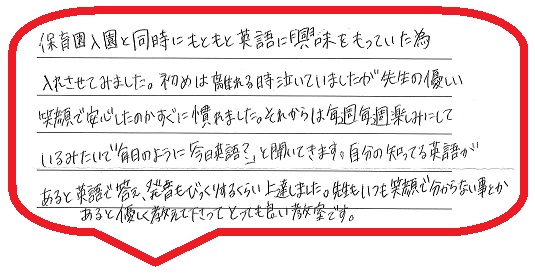 保育園入園と同時にもともと英語に興味をもっていた為
入れさせてみました。初めは離れる時泣いていましたが先生の優しい
笑顔で安心したのかすぐに慣れました。それからは毎週毎週楽しみにして
いるみたいで毎日のように「今日英語？」と聞いてきます。自分の知ってる英語が
あると英語で答え、発音もびっくりするくらい上達しました。先生もいつも笑顔で分からない事とか
あると優しく教えて下さってとっても良い教室です。